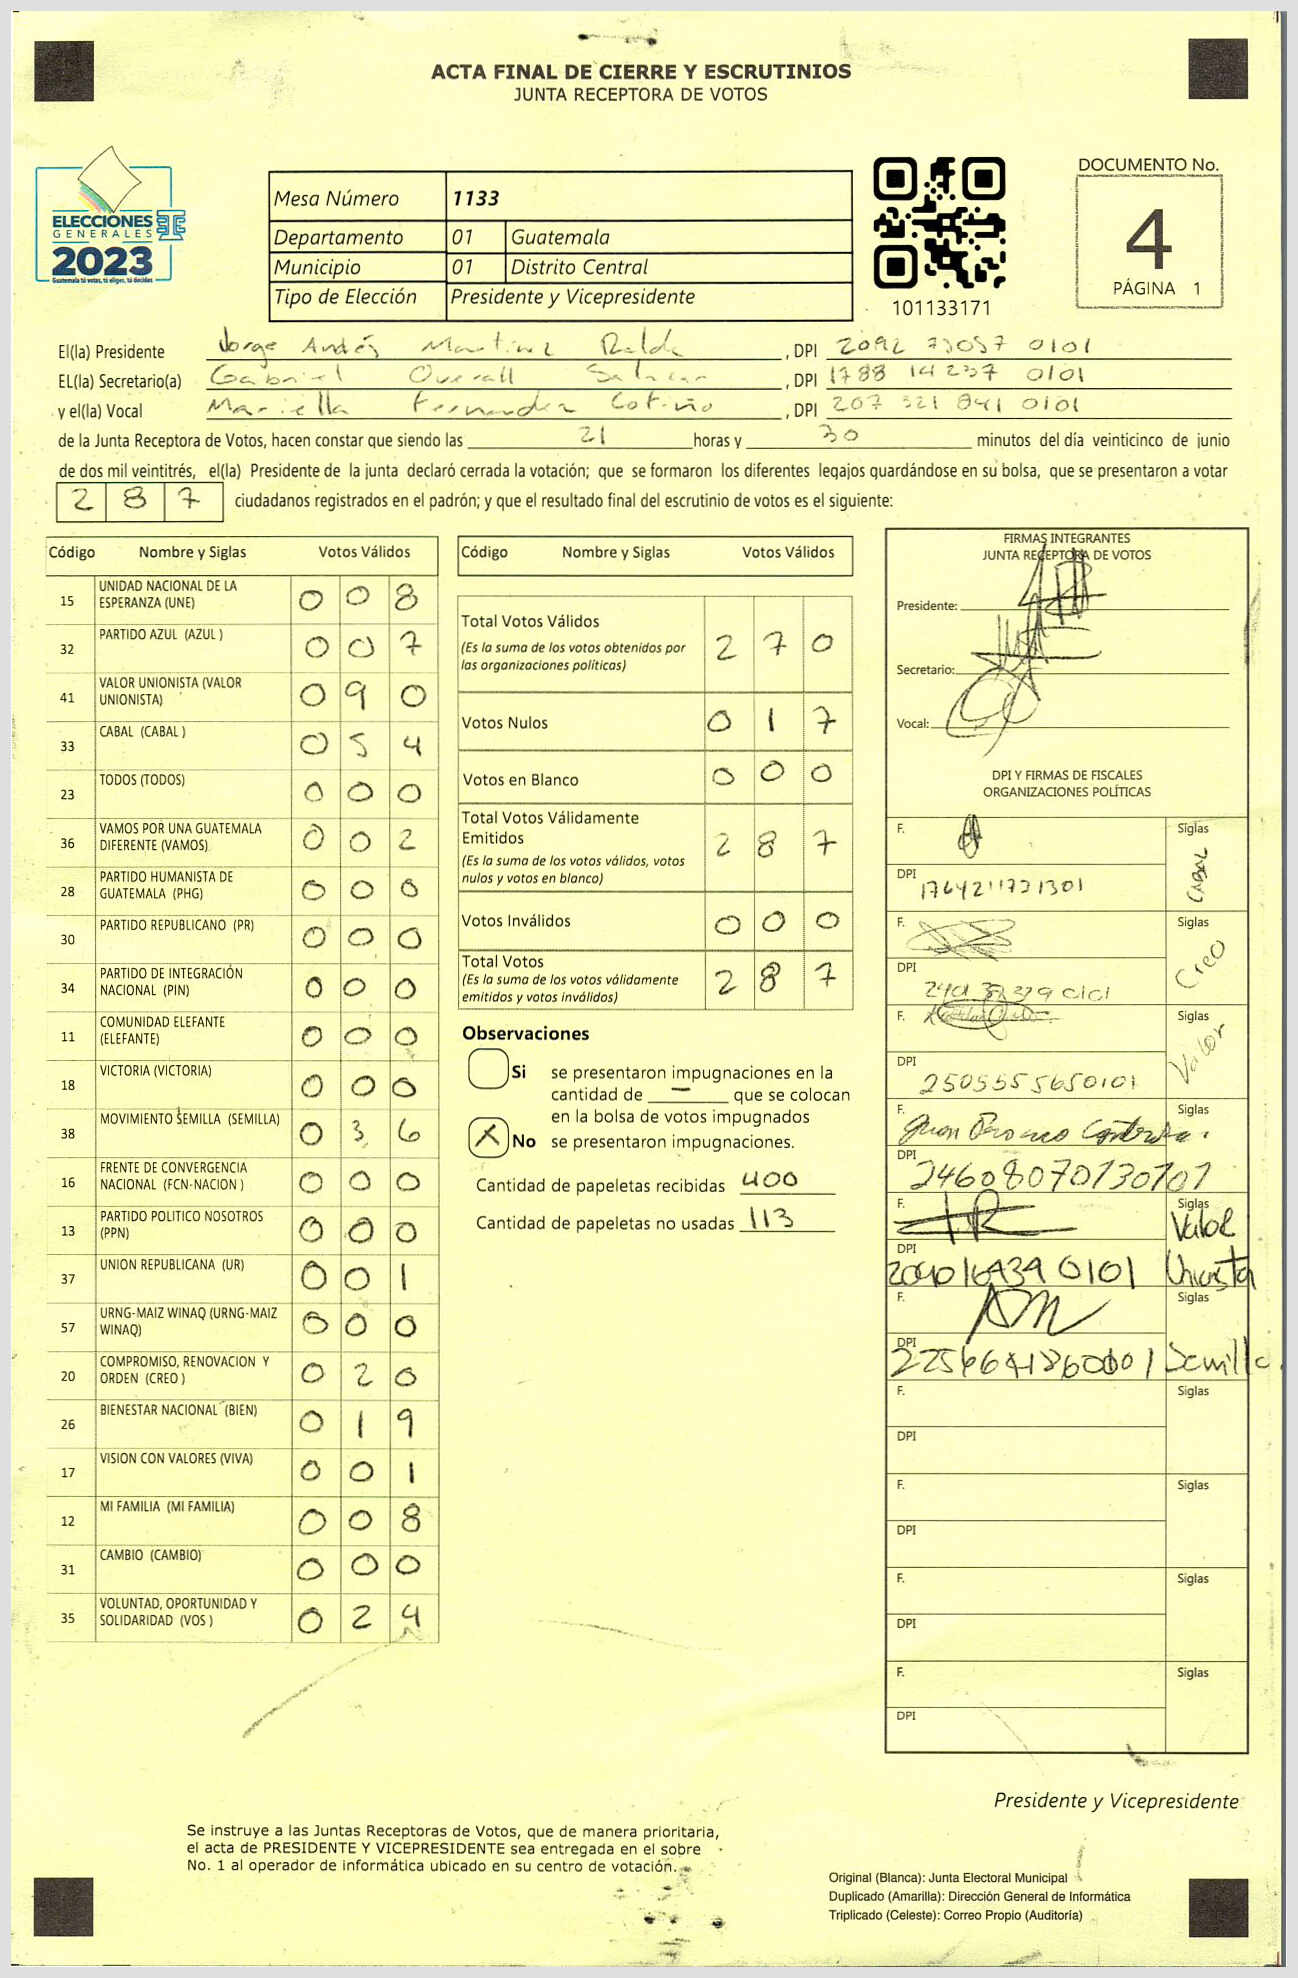 ACTA FINAL DE CIERRE Y ESCRUTINIOS
JUNTA RECEPTORA DE VOTOS
ELECCIONES
GENERALES
2023
Guatemala tú votas, tú eliges, tú decides
Mesa Número 1133
Departamento 01 Guatemala
Municipio 01 Distrito Central
Tipo de Elección Presidente y Vicepresidente
101133171
DOCUMENTO No.
4
PÁGINA 1
El(la) Presidente Jorge Andrés Martinez Ralda, DPI 2092 73057 0101
EL(la) Secretario(a) Gabriel Overall Salazar, DPI 1788 14237 0101
y el(la) Vocal Mariella Fernandez Cotiño, DPI 207 321 841 0101
de la Junta Receptora de Votos, hacen constar que siendo las 21 horas y 30 minutos del día veinticinco de junio
de dos mil veintitrés, el(la) Presidente de la junta declaró cerrada la votación; que se formaron los diferentes legajos guardándose en su bolsa, que se presentaron a votar
2 8 7 ciudadanos registrados en el padrón; y que el resultado final del escrutinio de votos es el siguiente:
Código Nombre y Siglas Votos Válidos
15 UNIDAD NACIONAL DE LA ESPERANZA (UNE) 0 0 8
32 PARTIDO AZUL (AZUL ) 0 0 7
41 VALOR UNIONISTA (VALOR UNIONISTA) 0 9 0
33 CABAL (CABAL ) 0 5 4
23 TODOS (TODOS) 0 0 0
36 VAMOS POR UNA GUATEMALA DIFERENTE (VAMOS) 0 0 2
28 PARTIDO HUMANISTA DE GUATEMALA (PHG) 0 0 0
30 PARTIDO REPUBLICANO (PR) 0 0 0
34 PARTIDO DE INTEGRACIÓN NACIONAL (PIN) 0 0 0
11 COMUNIDAD ELEFANTE (ELEFANTE) 0 0 0
18 VICTORIA (VICTORIA) 0 0 0
38 MOVIMIENTO SEMILLA (SEMILLA) 0 3 6
16 FRENTE DE CONVERGENCIA NACIONAL (FCN-NACION ) 0 0 0
13 PARTIDO POLITICO NOSOTROS (PPN) 0 0 0
37 UNION REPUBLICANA (UR) 0 0 1
57 URNG-MAIZ WINAQ (URNG-MAIZ WINAQ) 0 0 0
20 COMPROMISO, RENOVACION Y ORDEN (CREO ) 0 2 0
26 BIENESTAR NACIONAL (BIEN) 0 1 9
17 VISION CON VALORES (VIVA) 0 0 1
12 MI FAMILIA (MI FAMILIA) 0 0 8
31 CAMBIO (CAMBIO) 0 0 0
35 VOLUNTAD, OPORTUNIDAD Y SOLIDARIDAD (VOS ) 0 2 4
Código Nombre y Siglas Votos Válidos
Total Votos Válidos 2 7 0
(Es la suma de los votos obtenidos por
las organizaciones políticas)
Votos Nulos 0 1 7
Votos en Blanco 0 0 0
Total Votos Válidamente
Emitidos 2 8 7
(Es la suma de los votos válidos, votos
nulos y votos en blanco)
Votos Inválidos 0 0 0
Total Votos 2 8 7
(Es la suma de los votos válidamente
emitidos y votos inválidos)
Observaciones
Si se presentaron impugnaciones en la
cantidad de — que se colocan
en la bolsa de votos impugnados
X No se presentaron impugnaciones.
Cantidad de papeletas recibidas 400
Cantidad de papeletas no usadas 113
FIRMAS INTEGRANTES
JUNTA RECEPTORA DE VOTOS
Presidente:
Secretario:
Vocal:
DPI Y FIRMAS DE FISCALES
ORGANIZACIONES POLÍTICAS
F. Siglas
DPI 1764211721301 CABAL
F. Siglas
DPI Creo
F. Siglas
DPI 2505555650101 Valor
F. Siglas
DPI 2460807070101
F. Siglas
DPI 2040164390101 Valor Unionista
F. Siglas
DPI Semilla
F. Siglas
DPI
F. Siglas
DPI
F. Siglas
DPI
F. Siglas
DPI
Presidente y Vicepresidente
Se instruye a las Juntas Receptoras de Votos, que de manera prioritaria,
el acta de PRESIDENTE Y VICEPRESIDENTE sea entregada en el sobre
No. 1 al operador de informática ubicado en su centro de votación.
Original (Blanca): Junta Electoral Municipal
Duplicado (Amarilla): Dirección General de Informática
Triplicado (Celeste): Correo Propio (Auditoría)